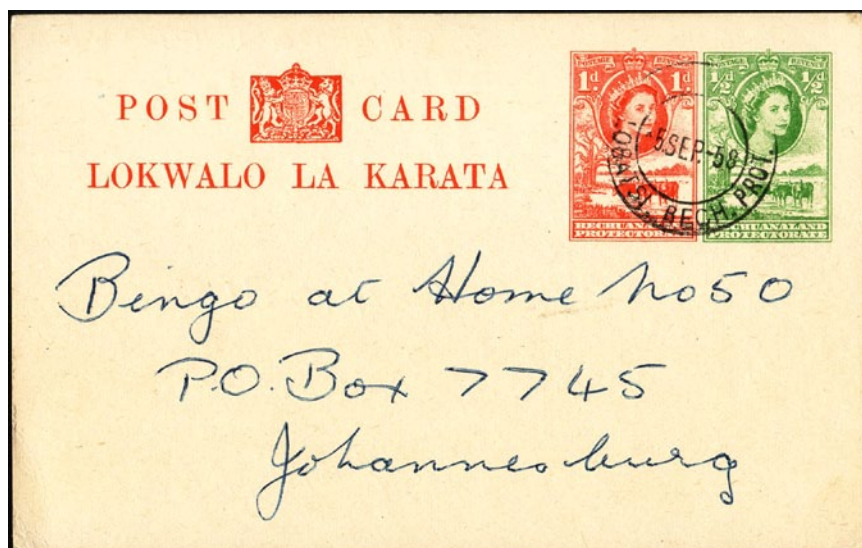 POST CARD
LOKWALO LA KARATA
POSTAGE REVENUE
1d. 1d.
BECHUANALAND
PROTECTORATE
POSTAGE REVENUE
½d ½d
BECHUANALAND
PROTECTORATE
LOBATSI. BECH. PROT.
5 SEP. 58
Bingo at Home No 50
P.O. Box 7745
Johannesburg